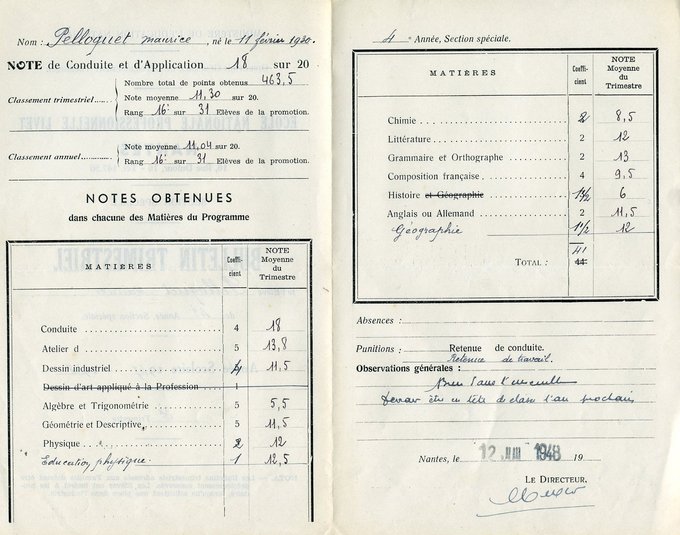 Nom : Pelloquet maurice, né le 11 février 1930.
NOTE de Conduite et d'Application 18 sur 20
Classement trimestriel......
Nombre total de points obtenus 463,5
Note moyenne 11,30 sur 20.
Rang 16e sur 31 Elèves de la promotion.
Classement annuel.....
Note moyenne 11,04 sur 20.
Rang 16e sur 31 Elèves de la promotion.
NOTES OBTENUES
dans chacune des Matières du Programme
MATIÈRES Coeffi-cient NOTE Moyenne du Trimestre
Conduite 4 18
Atelier d 5 13,8
Dessin industriel 4 11,5
Dessin d'art appliqué à la Profession 1
Algèbre et Trigonométrie 5 5,5
Géométrie et Descriptive 5 11,5
Physique 2 12
Education physique 1 12,5
4e Année, Section spéciale.
MATIÈRES Coeffi-cient NOTE Moyenne du Trimestre
Chimie 2 8,5
Littérature 2 12
Grammaire et Orthographe 2 13
Composition française 4 9,5
Histoire et Géographie 1 1/2 6
Anglais ou Allemand 2 11,5
Géographie 1 1/2 12
41
TOTAL : 44
Absences :
Punitions : Retenue de conduite.
Retenue de travail.
Observations générales :
Devrait être en tête de classe l'an prochain
Nantes, le 12 1948 19
LE DIRECTEUR,